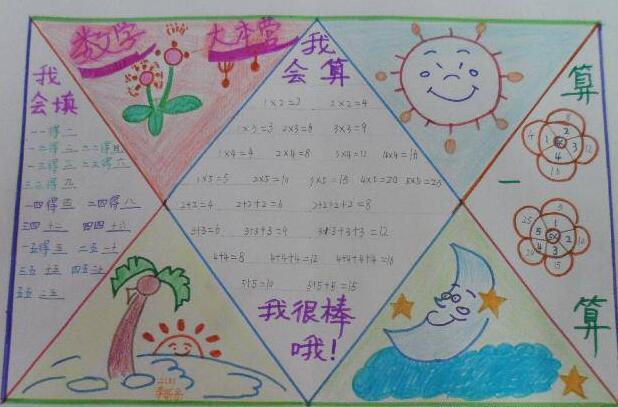 数学 大本营
我会填
一一得一
一二得二 二二得四
一三得三 二三得六
三三得九
一四得四 二四得八
三四十二 四四十六
一五得五 二五一十
三五十五 四五二十
五五二五
我会算
1×2=2 2×2=4
1×3=3 2×3=6 3×3=9
1×4=4 2×4=8 3×4=12 4×4=16
1×5=5 2×5=10 3×5=15 4×5=20 5×5=25
2+2=4 2+2+2=6 2+2+2+2=8
3+3=6 3+3+3=9 3+3+3+3=12
4+4=8 4+4+4=12 4+4+4+4=16
5+5=10 5+5+5=15
我很棒
哦!
算一算
8 4 12 16
1 2 3 4
5 10 15 20 25
5× 1 2 3 4 5